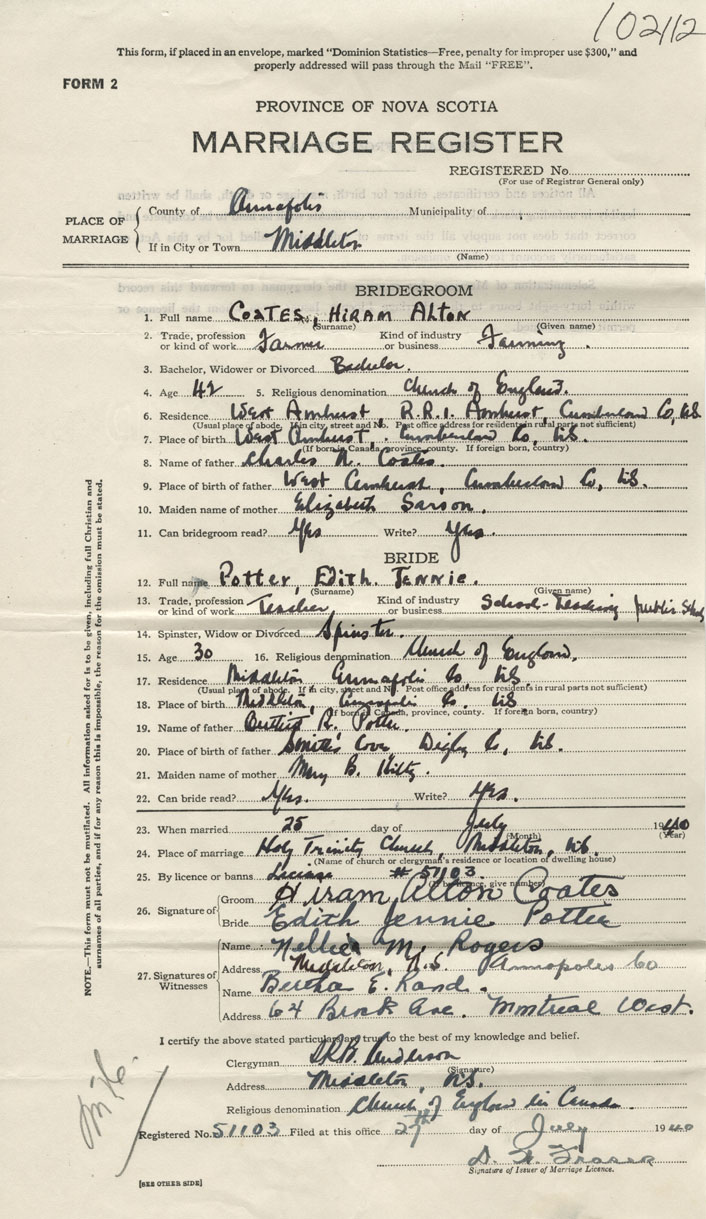 102112
This form, if placed in an envelope, marked "Dominion Statistics—Free, penalty for improper use $300," and
properly addressed will pass through the Mail "FREE".
FORM 2
PROVINCE OF NOVA SCOTIA
MARRIAGE REGISTER
REGISTERED No.
(For use of Registrar General only)
PLACE OF MARRIAGE
County of Annapolis Municipality of
If in City or Town Middleton
(Name)
BRIDEGROOM
1. Full name COATES, HIRAM ALTON
(Surname) (Given name)
2. Trade, profession or kind of work Farmer Kind of industry or business Farming.
3. Bachelor, Widower or Divorced Bachelor.
4. Age 42 5. Religious denomination Church of England.
6. Residence West Amherst, R.R.1. Amherst, Cumberland Co, N.S.
(Usual place of abode. If in city, street and No. Post office address for residents in rural parts not sufficient)
7. Place of birth West Amherst, Cumberland Co, N.S.
(If born in Canada, province, county. If foreign born, country)
8. Name of father Charles Coates.
9. Place of birth of father West Amherst, Cumberland Co, N.S.
10. Maiden name of mother Elizabeth
11. Can bridegroom read? Yes Write? Yes.
BRIDE
12. Full name Potter, Edith Jennie.
(Surname) (Given name)
13. Trade, profession or kind of work Teacher Kind of industry or business School-Teaching public
14. Spinster, Widow or Divorced Spinster.
15. Age 30 16. Religious denomination Church of England.
17. Residence Middleton Annapolis Co, N.S.
(Usual place of abode. If in city, street and No. Post office address for residents in rural parts not sufficient)
18. Place of birth Middleton, Annapolis Co. N.S.
(If born in Canada, province, county. If foreign born, country)
19. Name of father R. Potter.
20. Place of birth of father Smith's Cove Digby Co, N.S.
21. Maiden name of mother Mary B.
22. Can bride read? Yes. Write? Yes.
23. When married 25 day of July 1940
(Month) (Year)
24. Place of marriage Holy Trinity Church, Middleton, N.S.
(Name of church or clergyman's residence or location of dwelling house)
25. By licence or banns License #51103
(If by licence, give number)
26. Signature of
Groom Hiram Alton Coates
Bride Edith Jennie Potter
27. Signatures of Witnesses
Name Nellie M. Rogers
Address Middleton, N.S. Annapoles Co
Name Bertha E. Rand.
Address 64 Brock Ave. Montreal West.
I certify the above stated particulars are true to the best of my knowledge and belief.
Clergyman Anderson
(Signature)
Address Middleton, N.S.
Religious denomination Church of England in Canada.
Registered No. 51103 Filed at this office 27th day of July 1940
Fraser
Signature of Issuer of Marriage Licence.
[SEE OTHER SIDE]
NOTE.—This form must not be mutilated. All information asked for is to be given, including full Christian and
surnames of all parties, and if for any reason this is impossible, the reason for the omission must be stated.